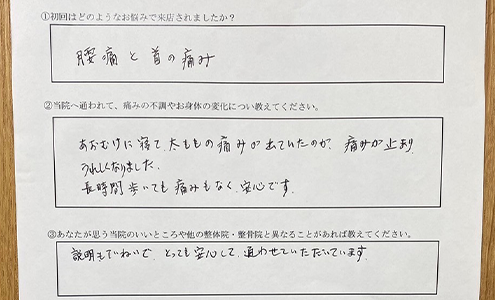 ①初回はどのようなお悩みで来店されましたか？
腰痛と首の痛み
②当院へ通われて、痛みの不調やお身体の変化につい教えてください。
あおむけに寝て、太ももの痛みが出ていたのが、痛みが止まり
うれしくなりました。
長時間歩いても痛みもなく、安心です。
③あなたが思う当院のいいところや他の整体院・整骨院と異なることがあれば教えてください。
説明もていねいで、とっても安心して、通わせていただいています。